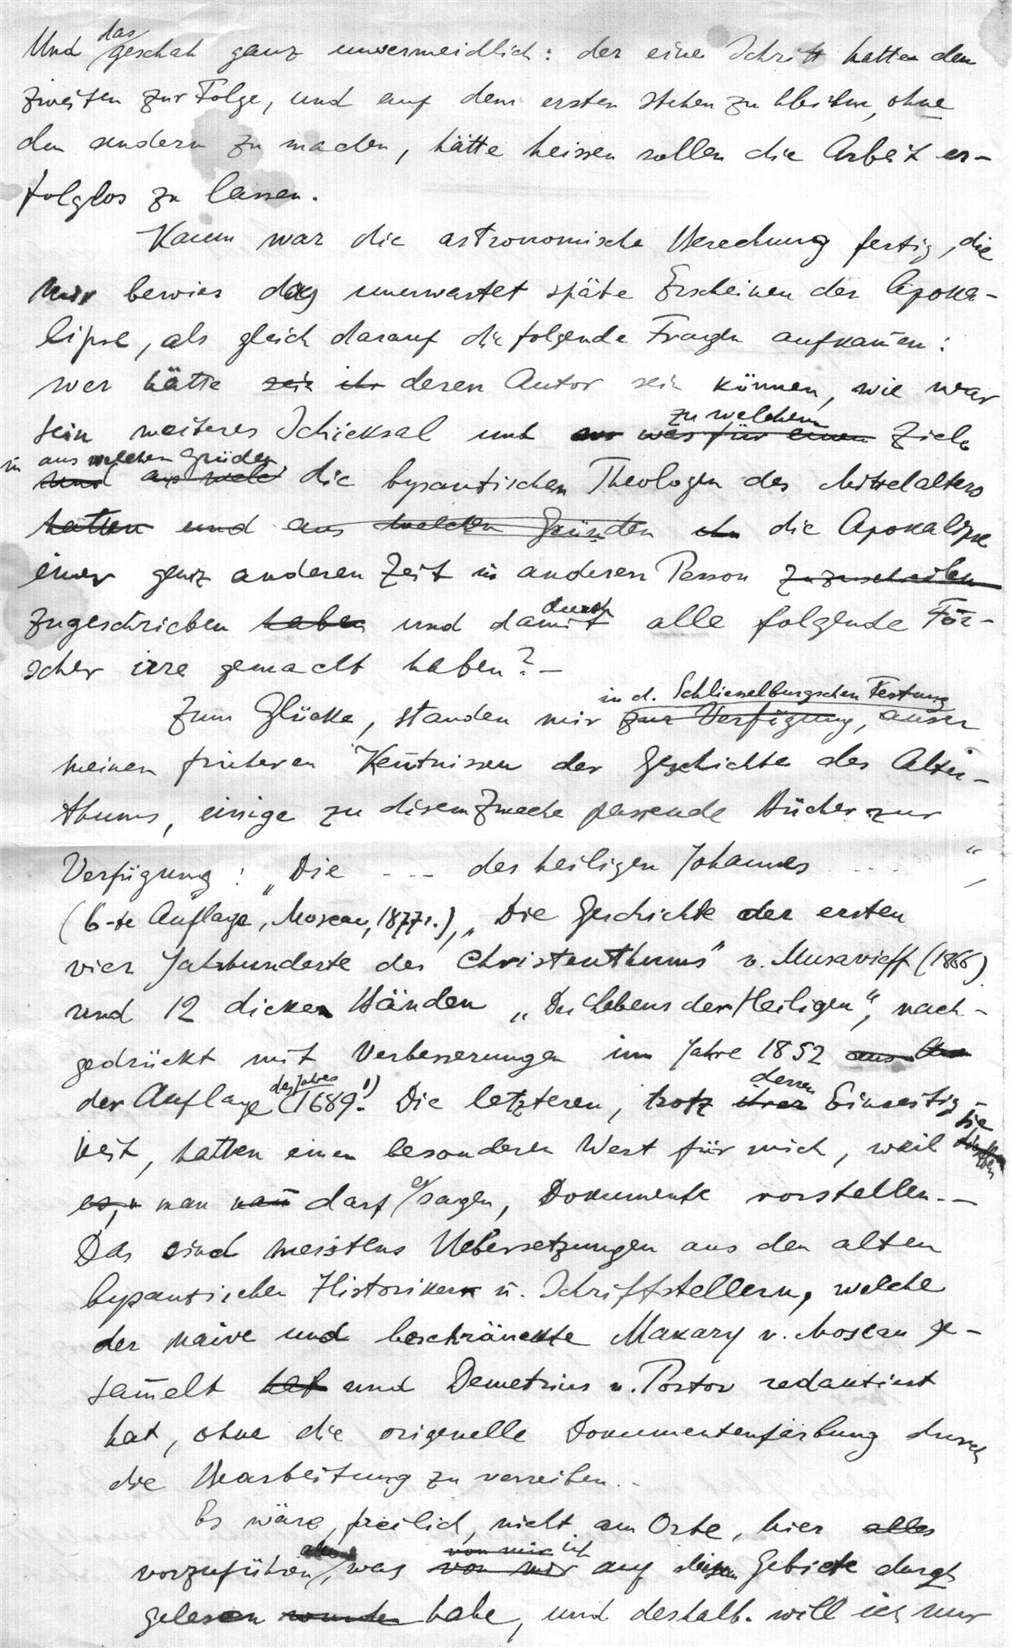 Und das geschah ganz unvermeidlich: der eine Schritt hatten den
zweiten zur Folge, und auf dem ersten stehen zu bleiben, ohne
den andern zu machen, hätte heissen sollen die Arbeit er-
folglos zu lassen.
Kaum war die astronomische Berechnung fertig, die
mir bewies das unerwartet späte Erscheinen der Apoka-
lipse, als gleich darauf die folgende Fragen aufkamen:
wer hätte sein ihr deren Autor sein können, wie war
sein weiteres Schicksal und zu welchem was für einen Ziele
in aus welchen Gründen
und aus welch die byzantischen Theologen des Mittelalters
hatten und aus welchen Gründen ihn die Apokalipse
einer ganz anderen Zeit u anderen Person zuzuschreiben
zugeschrieben haben und damit durch alle folgende För-
scher irre gemacht haben? —
in d. Schliesselburgschen Festung
Zum Glücke, standen mir zur Verfügung, ausser
meinen früheren Kentnissen der Geschichte des Alter-
thums, einige zu disem Zwecke passende Bücher zur
Verfügung: „Die --- des heiligen Johannes .... “
(6-te Auflage, Moscau, 1877 г.), „Die Geschichte der ersten
vier Jahrhunderte des Christenthums“ v. Muravieff (1866)
und 12 dicken Bänden „Des Lebens der Heiligen“, nach-
gedrückt mit Verbesserungen im Jahre 1852 aus der
der Auflage des Jahres (1689.¹) Die letzteren, trotz ihrer deren Einseitig-
keit, hatten einen besonderen Wert für mich, weil sie
es, man kan darf sagen, Dokumente vorstellen. —
Das sind meistens Uebersetzungen aus den alten
byzantischen Historikern u. Schriftstellern, welche
der naive und beschränckte Makary v. Moscau ge-
samelt hat und Demetrius v. Rostov redaktirt
hat, ohne die origenelle Dokumentenfärbung durch
die Bearbeitung zu verreiben. -
Es wäre, freilich, nicht am Orte, hier alles
vorzuführen, was von mir von mir ich auf disem Gebiete durch
gelesen wurden habe, und deshalb will ich nur